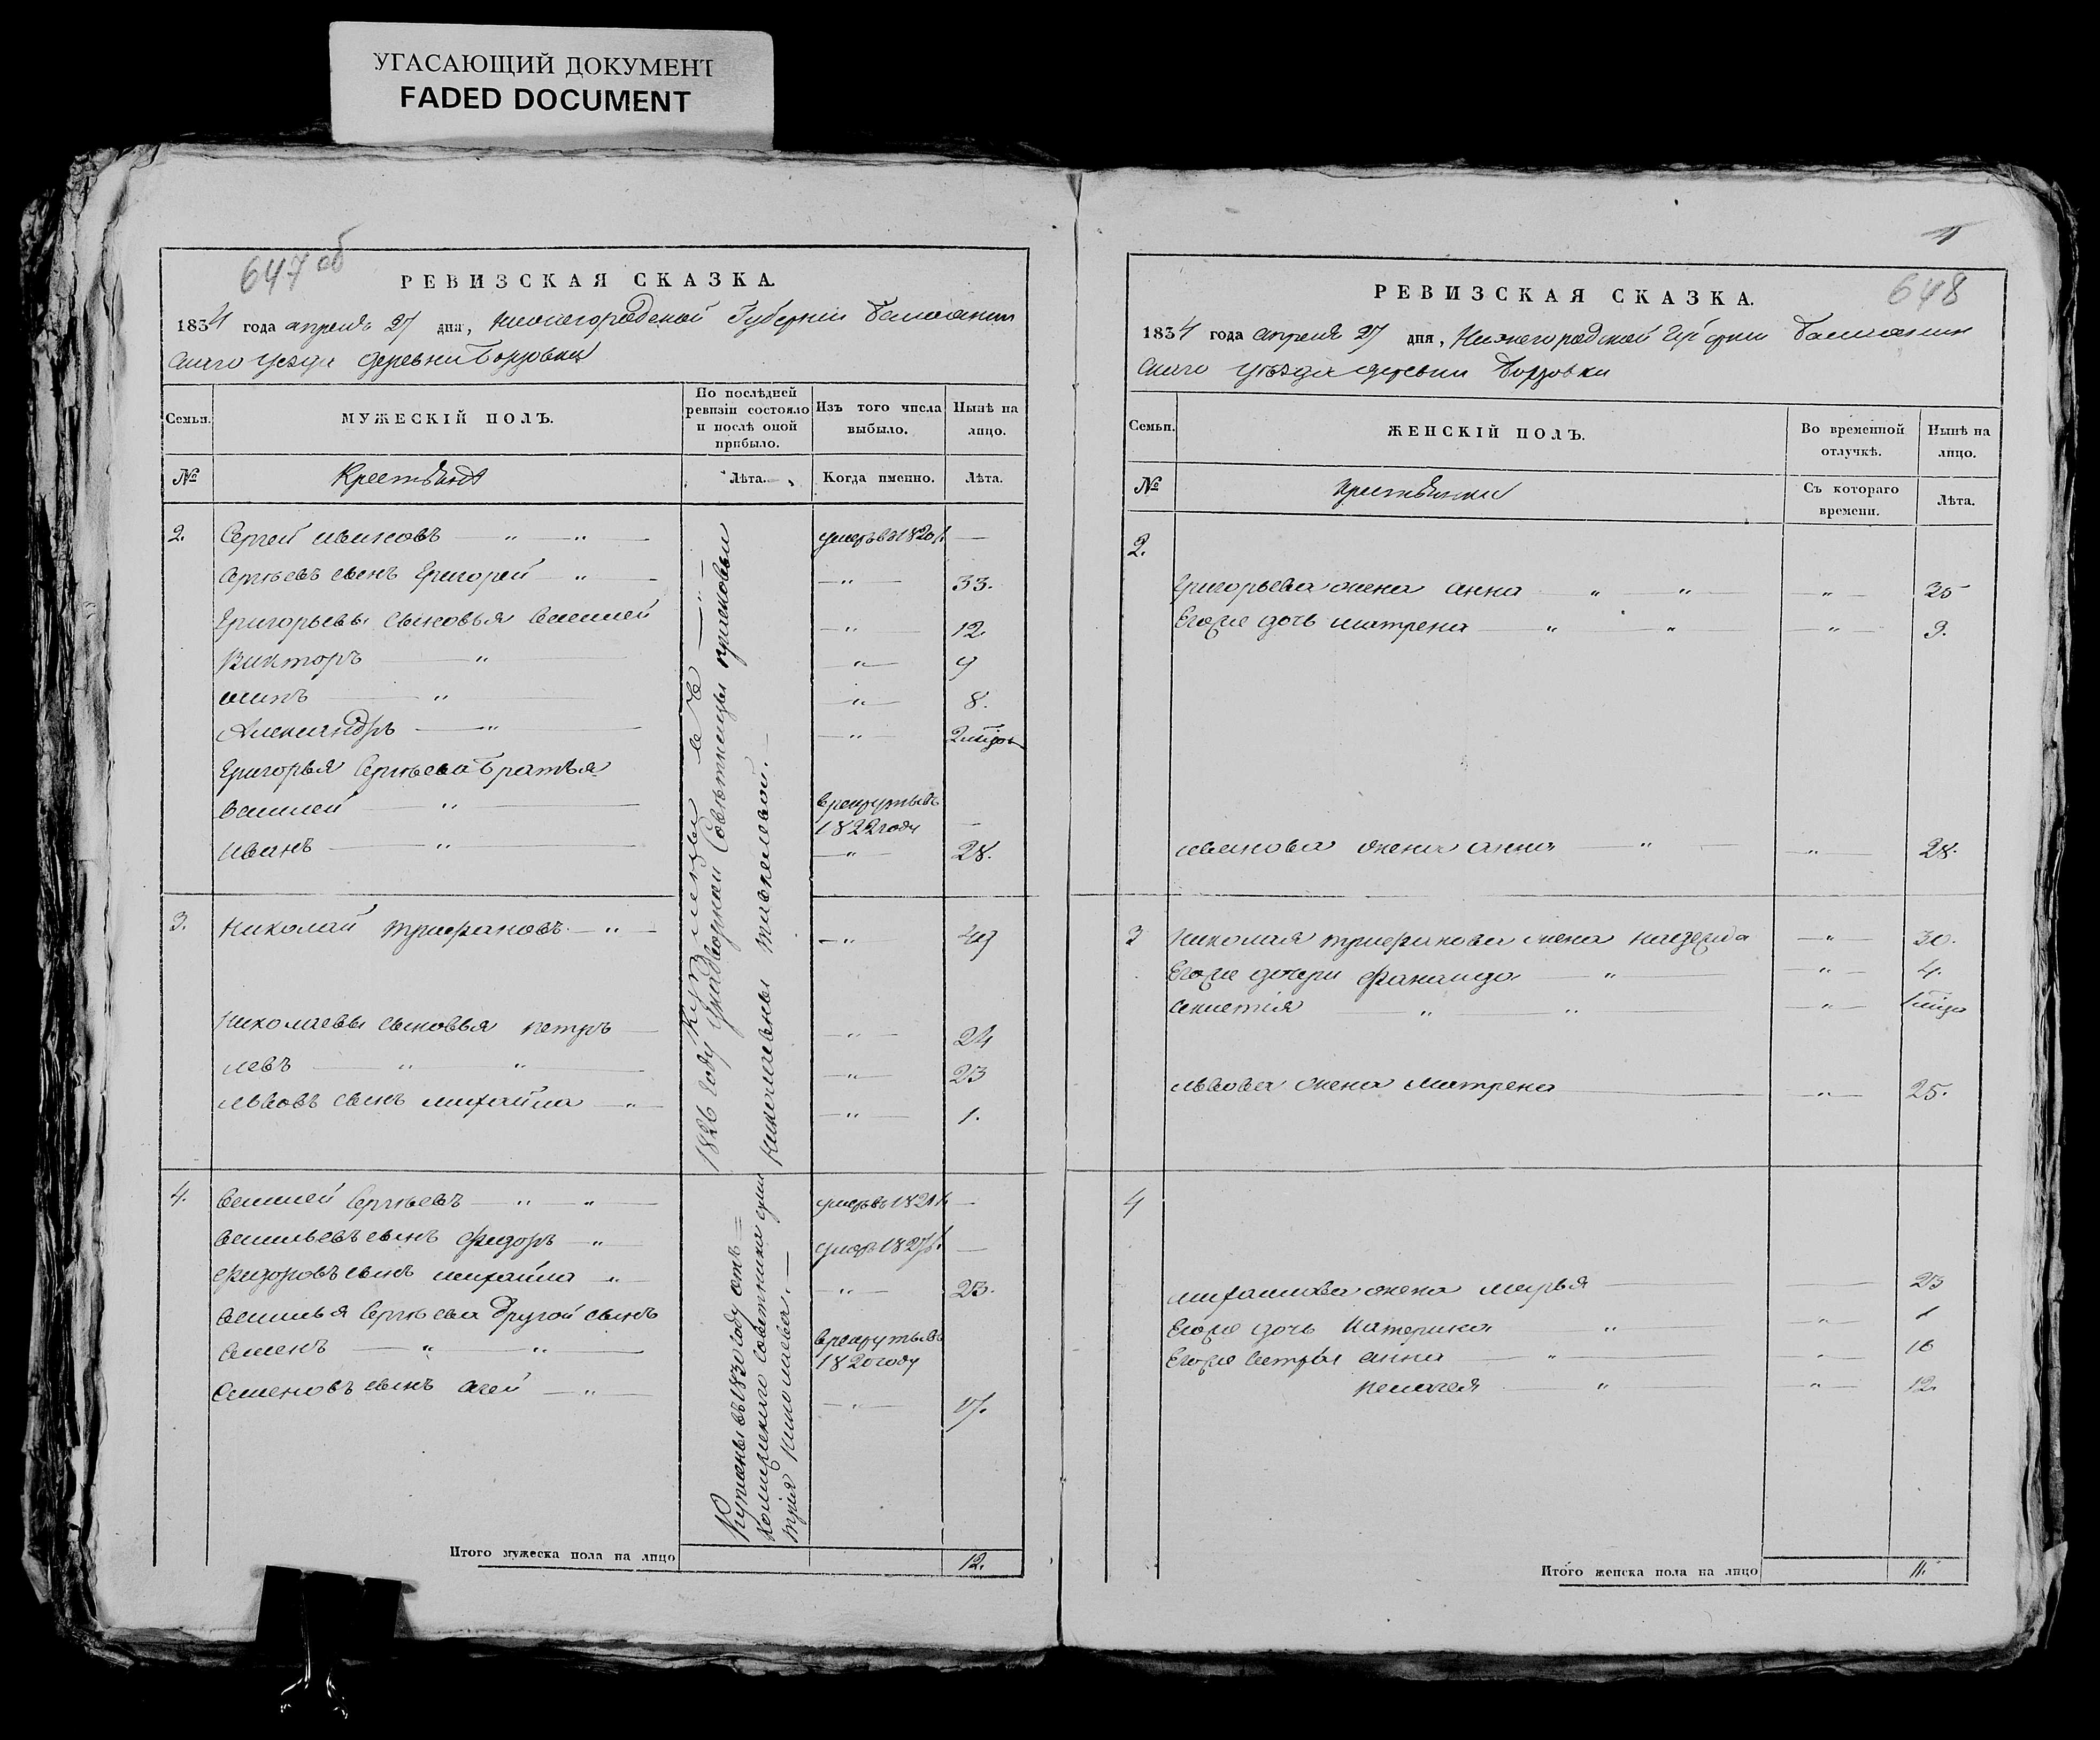 УГАСАЮЩИЙ ДОКУМЕНТ
FADED DOCUMENT
647 об
РЕВИЗСКАЯ СКАЗКА.
1834 года апреля 27 дня, Нижегородской Губернии Балахнин
скаго уезда деревни Борзовки
Семьи. МУЖЕСКІЙ ПОЛЪ. По послѣдней ревизіи состояло и послѣ оной прибыло. Изъ того числа выбыло. Нынѣ на лицо.
№ Крестьяне Лѣта. Когда именно. Лѣта.
2. Сергей ивановъ умеръ въ 1820 г. —
Сергѣевъ сынъ Григорей 33.
Григорьевы сыновья Василей 12.
Викторъ 9
8.
Александръ 2
Григорья Сергѣева братья
Василей в рекруты въ
1822 году —
Иванъ 28.
3. Николай трифановъ 49
Николаевы сыновья петръ 24
левъ 23
львовъ сынъ михайла 1.
4. Василей Сергѣевъ умеръ въ —
Васильевъ сынъ Фидоръ умеръ —
Фидоровъ сынъ михайла 23.
Василья Сергѣева другой сынъ
Семенъ в рекруты въ
1820 году
Семеновъ сынъ 17.
1826 году
надворной Совѣтницы
николаевны
Куплены въ 1830 году отъ
Колежскаго Советника
николаева.
Итого мужеска пола на лицо 12.
648
РЕВИЗСКАЯ СКАЗКА.
1834 года апреля 27 дня, Нижегородской Губернии Балахнин
скаго уѣзда деревни Борзовки
Семьи. ЖЕНСКІЙ ПОЛЪ. Во временной отлучкѣ. Нынѣ на лицо.
№ Крестьянки Съ котораго времени. Лѣта.
2.
Григорьева жена анна 35
Егоже дочь матрена 9.
иванова жена анна 28.
3 Николая трифанова жена надежда 30.
Егоже дочери 4.
львова жена матрена 25.
4
михайлова жена марья 23
Егоже дочь Катерина 1
Егоже сестры анна 16
пелагея 12.
Итого женска пола на лицо 11.